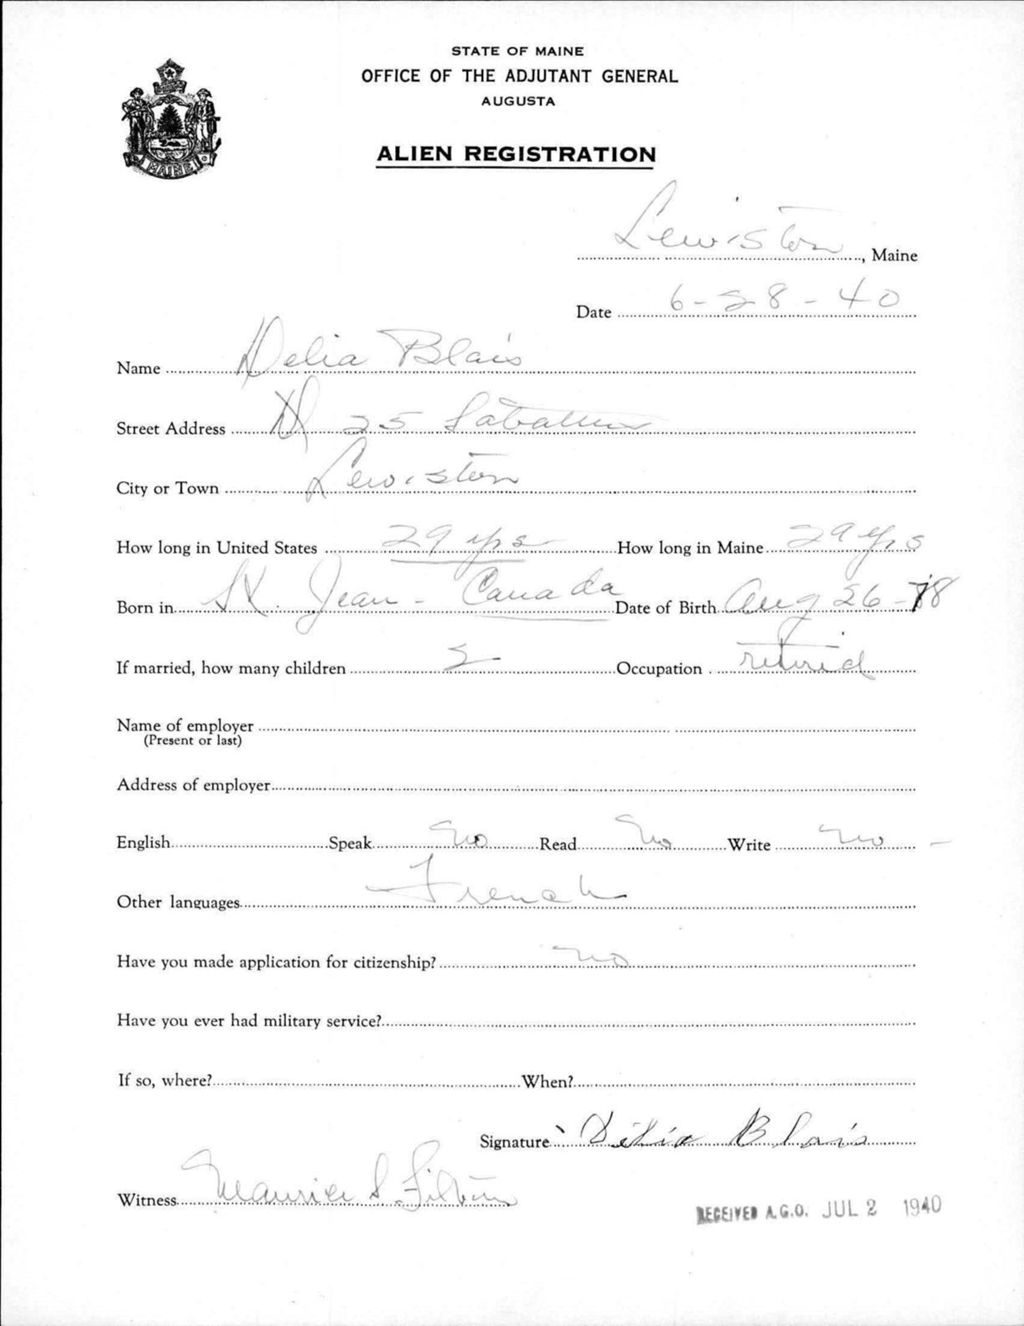 STATE OF MAINE
OFFICE OF THE ADJUTANT GENERAL
AUGUSTA
ALIEN REGISTRATION
MAINE
Lewiston, Maine
Date 6-28-40
Name Delia Blais
Street Address 25
City or Town Lewiston
How long in United States 29 yrs How long in Maine 29 yrs
Born in St. Jean - Canada Date of Birth Aug 26 - 78
If married, how many children Occupation retired
Name of employer
(Present or last)
Address of employer
English Speak no Read no Write no -
Other languages French
Have you made application for citizenship? no
Have you ever had military service?
If so, where? When?
Signature Délia Blais
Witness Maurice S.
RECEIVED A.G.O. JUL 2 1940